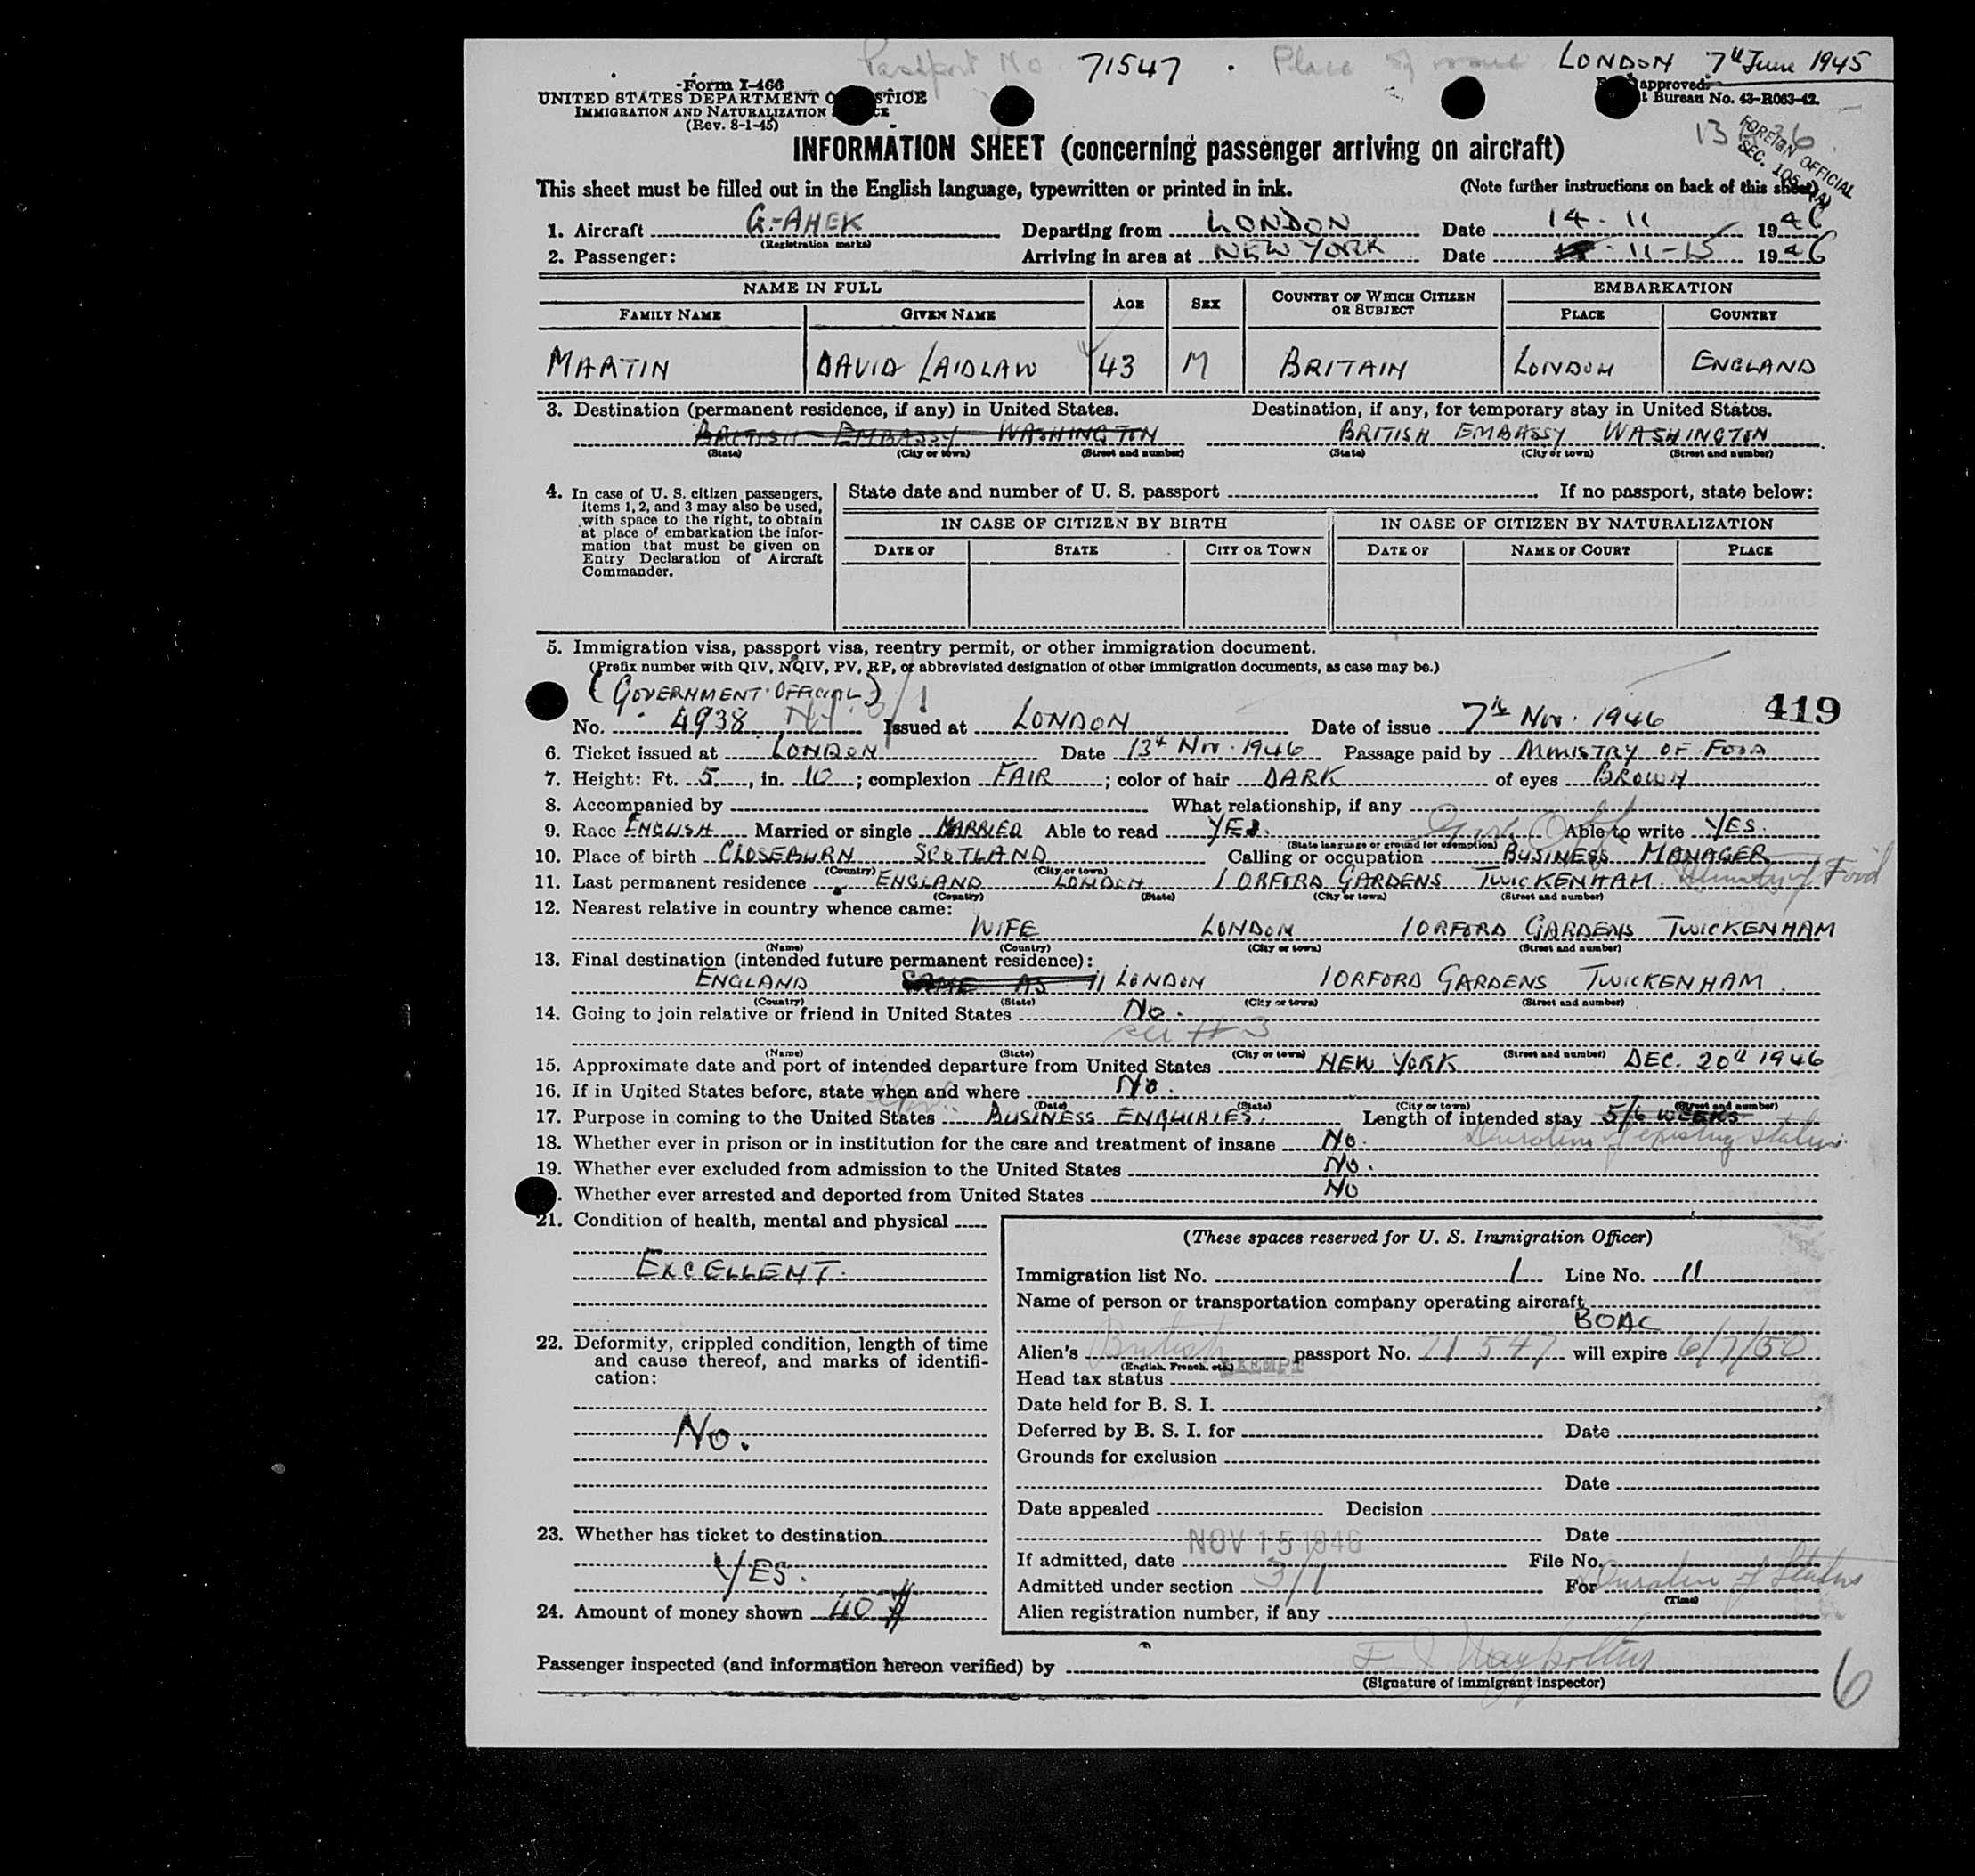 Passport No 71547 . Place of issue LONDON 7th June 1945
Form I-466
UNITED STATES DEPARTMENT O STICE
IMMIGRATION AND NATURALIZATION CE
(Rev. 8-1-45)
approved.
t Bureau No. 43-R063-42.
FOREIGN OFFICIAL
SEC.
INFORMATION SHEET (concerning passenger arriving on aircraft)
This sheet must be filled out in the English language, typewritten or printed in ink. (Note further instructions on back of this sheet)
1. Aircraft G-AHEK Departing from LONDON Date 14-11 1946
(Registration marks)
2. Passenger: Arriving in area at NEW YORK Date 11-15 1946
NAME IN FULL AGE SEX COUNTRY OF WHICH CITIZEN OR SUBJECT EMBARKATION
FAMILY NAME GIVEN NAME PLACE COUNTRY
MARTIN DAVID LAIDLAW 43 M BRITAIN LONDON ENGLAND
3. Destination (permanent residence, if any) in United States. Destination, if any, for temporary stay in United States.
BRITISH EMBASSY WASHINGTON BRITISH EMBASSY WASHINGTON
(State) (City or town) (Street and number) (State) (City or town) (Street and number)
4. In case of U. S. citizen passengers, items 1, 2, and 3 may also be used, with space to the right, to obtain at place of embarkation the information that must be given on Entry Declaration of Aircraft Commander.
State date and number of U. S. passport . If no passport, state below:
IN CASE OF CITIZEN BY BIRTH IN CASE OF CITIZEN BY NATURALIZATION
DATE OF STATE CITY OR TOWN DATE OF NAME OF COURT PLACE
5. Immigration visa, passport visa, reentry permit, or other immigration document.
(Prefix number with QIV, NQIV, PV, RP, or abbreviated designation of other immigration documents, as case may be.)
(GOVERNMENT OFFICIAL) 3/1
No. 4938 Issued at LONDON Date of issue 7th Nov. 1946 419
6. Ticket issued at LONDON Date 13th Nov. 1946 Passage paid by MINISTRY OF FOOD
7. Height: Ft. 5, in. 10; complexion FAIR; color of hair DARK of eyes BROWN
8. Accompanied by What relationship, if any
9. Race ENGLISH Married or single MARRIED Able to read YES. Able to write YES.
(State language or ground for exemption)
10. Place of birth CLOSEBURN SCOTLAND Calling or occupation BUSINESS MANAGER
(Country) (City or town)
11. Last permanent residence ENGLAND LONDON 1 ORFORD GARDENS TWICKENHAM. Ministry of Food
(Country) (State) (City or town) (Street and number)
12. Nearest relative in country whence came:
WIFE LONDON 1 ORFORD GARDENS TWICKENHAM
(Name) (Country) (City or town) (Street and number)
13. Final destination (intended future permanent residence):
ENGLAND SAME AS 11 LONDON 1 ORFORD GARDENS TWICKENHAM
(Country) (State) (City or town) (Street and number)
14. Going to join relative or friend in United States No.
see # 3
(Name) (State) (City or town) (Street and number)
15. Approximate date and port of intended departure from United States NEW YORK DEC. 20th 1946
16. If in United States before, state when and where No.
(Date) (State) (City or town) (Street and number)
17. Purpose in coming to the United States BUSINESS ENQUIRIES. Length of intended stay 5/6 WEEKS
Duration of existing status
18. Whether ever in prison or in institution for the care and treatment of insane No.
19. Whether ever excluded from admission to the United States No.
. Whether ever arrested and deported from United States No
21. Condition of health, mental and physical
EXCELLENT.
22. Deformity, crippled condition, length of time and cause thereof, and marks of identification:
No.
23. Whether has ticket to destination
YES.
24. Amount of money shown 40 $
(These spaces reserved for U. S. Immigration Officer)
Immigration list No. 1 Line No. 11
Name of person or transportation company operating aircraft
BOAC
Alien's British passport No. 71547 will expire 6/7/50
(English, French, etc.)
Head tax status EXEMPT
Date held for B. S. I.
Deferred by B. S. I. for Date
Grounds for exclusion
Date
Date appealed Decision
Date
If admitted, date NOV 15 1946 File No.
Admitted under section 3/1 For Duration of Status
(Time)
Alien registration number, if any
Passenger inspected (and information hereon verified) by
(Signature of immigrant inspector)
6